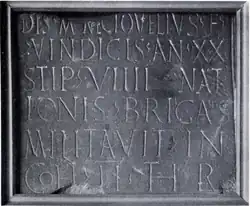 DIS M NECTOVELIUS F
VINDICIS AN XX
STIP VIIII NAT
IONIS BRIGANS
MILITAVIT IN
COH II THR